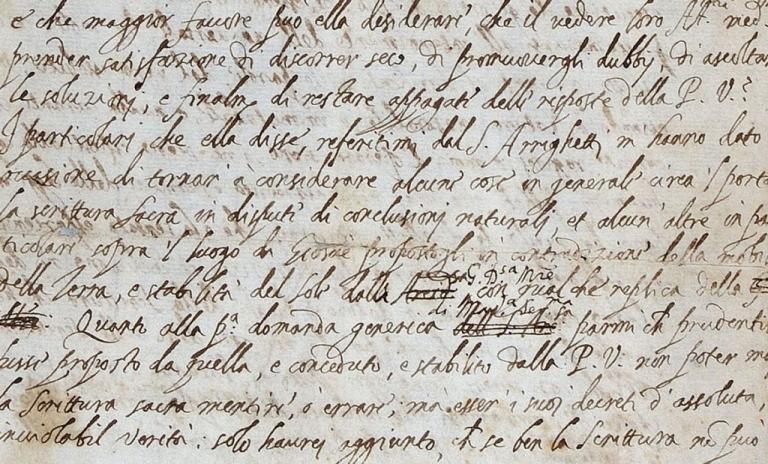 e che maggior favore puo ella desiderare, che il vedere loro Al.
prender satisfazione di discorrer seco, di promuovergli dubbij, di ascoltar
le soluzioni, e finalm. di restare appagate delle risposte della P. V.?
I particolari che ella disse, referitimi dal S. Arrighetti m hanno dato
occasione di tornar' a considerare alcune cose in generale circa 'l portar
la scrittura sacra in dispute di conclusioni naturali, et alcun' altre in par
ticolare sopra 'l luogo di Giosue propostogli in contradizione della mobil
della Terra, e stabilità del Sole dalla con qualche replica della
Quanto alla p.ª domanda generica di parmi ch' prudentis
fusse proposto da quella, e conceduto, e stabilito dalla P. V. non poter ma
la Scrittura sacra mentire, o errare, ma esser i suoi decreti d' assoluta,
inviolabil verità: solo haurei aggiunto, ch' se ben la Scrittura nō può